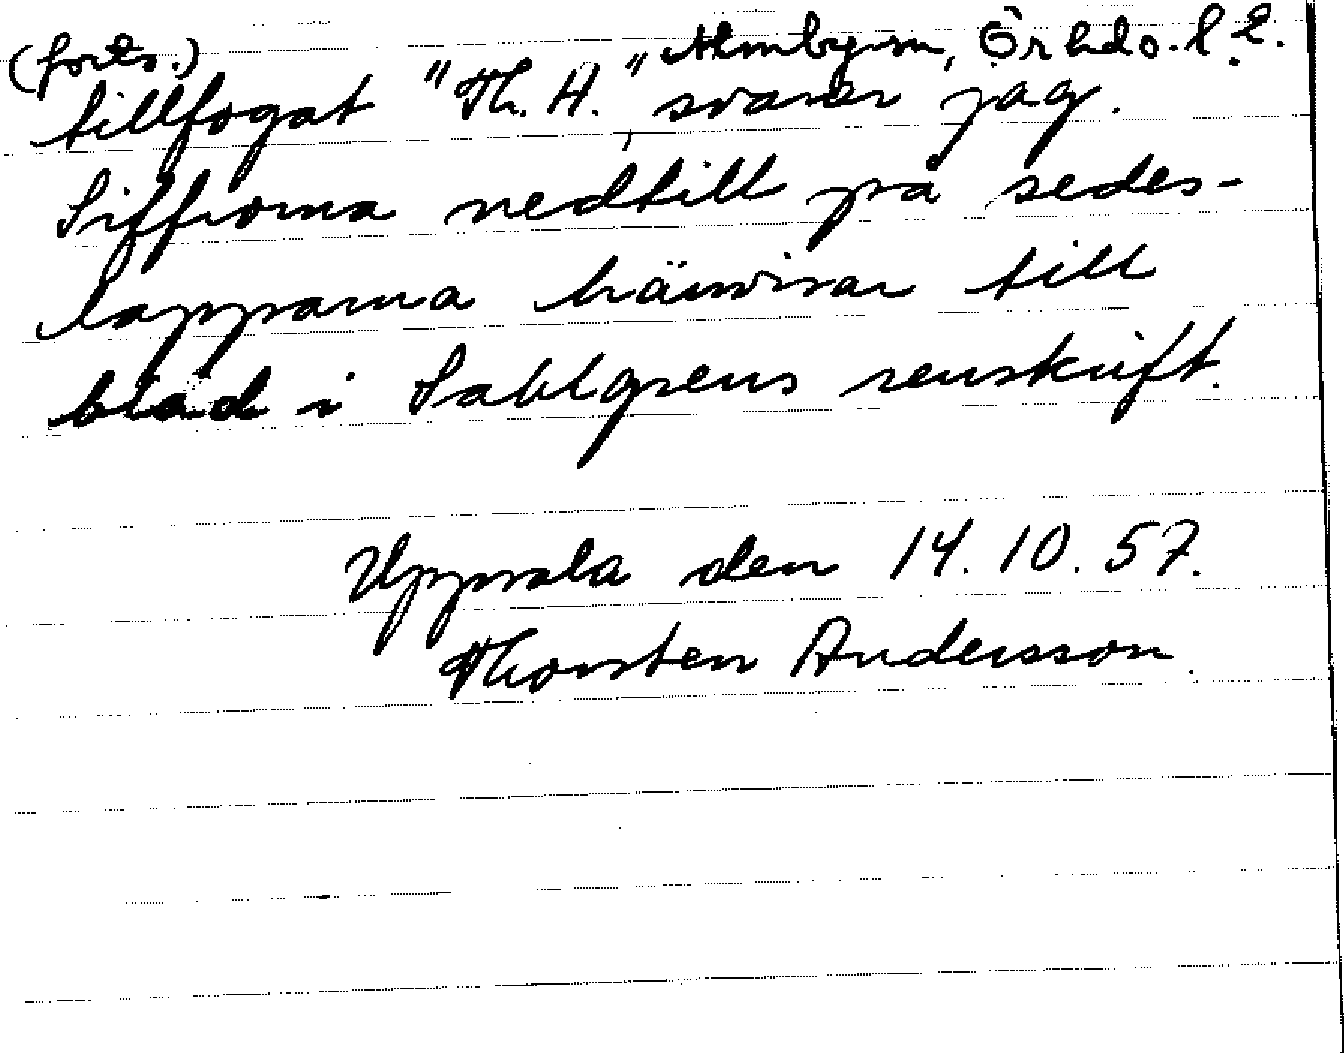 (forts.) Almby sn, Ör hd Ö. l. L.
tillfogat "Th. A.", svarar jag.
Siffrorna nedtill på sedes-
lapparna hänvisar till
blad i Sahlgrens renskrift.
Uppsala den 14.10.57.
Thorsten Andersson.